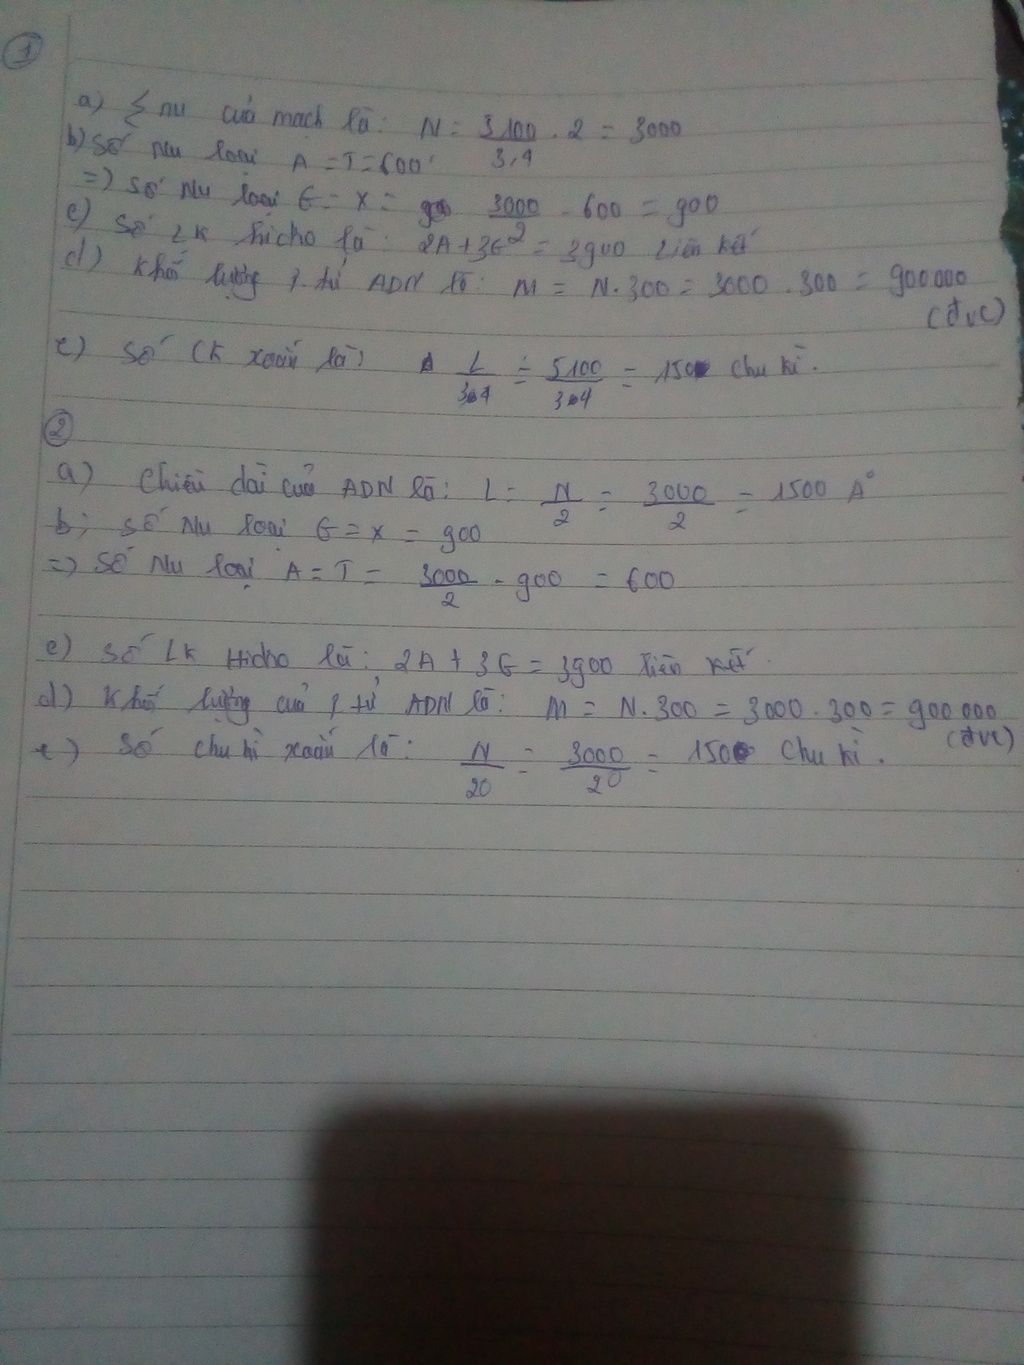 1
a) Σ nu của mạch là: N = 3100/3,4 . 2 = 3000
b) Số Nu loại A = T = 600
=) Số Nu loại G = X = 3000/2 - 600 = 900
c) Số LK hicho là: 2A + 3G = 3900 liên kết
d) Khối lượng p.tử ADN là: M = N.300 = 3000.300 = 900.000
(đvc)
e) Số CK xoắn là: L/3,4 = 5100/3,4 = 150 chu kì.
2
a) Chiều dài của ADN là: L = N/2 = 3000/2 = 1500 A°
b) Số Nu loại G = X = 900
=) Số Nu loại A = T = 3000/2 - 900 = 600
c) Số LK Hidro là: 2A + 3G = 3900 liên kết
d) Khối lượng của p tử ADN là: M = N.300 = 3000.300 = 900 000
(đvc)
e) Số chu kì xoắn là: N/20 = 3000/20 = 150 chu kì.